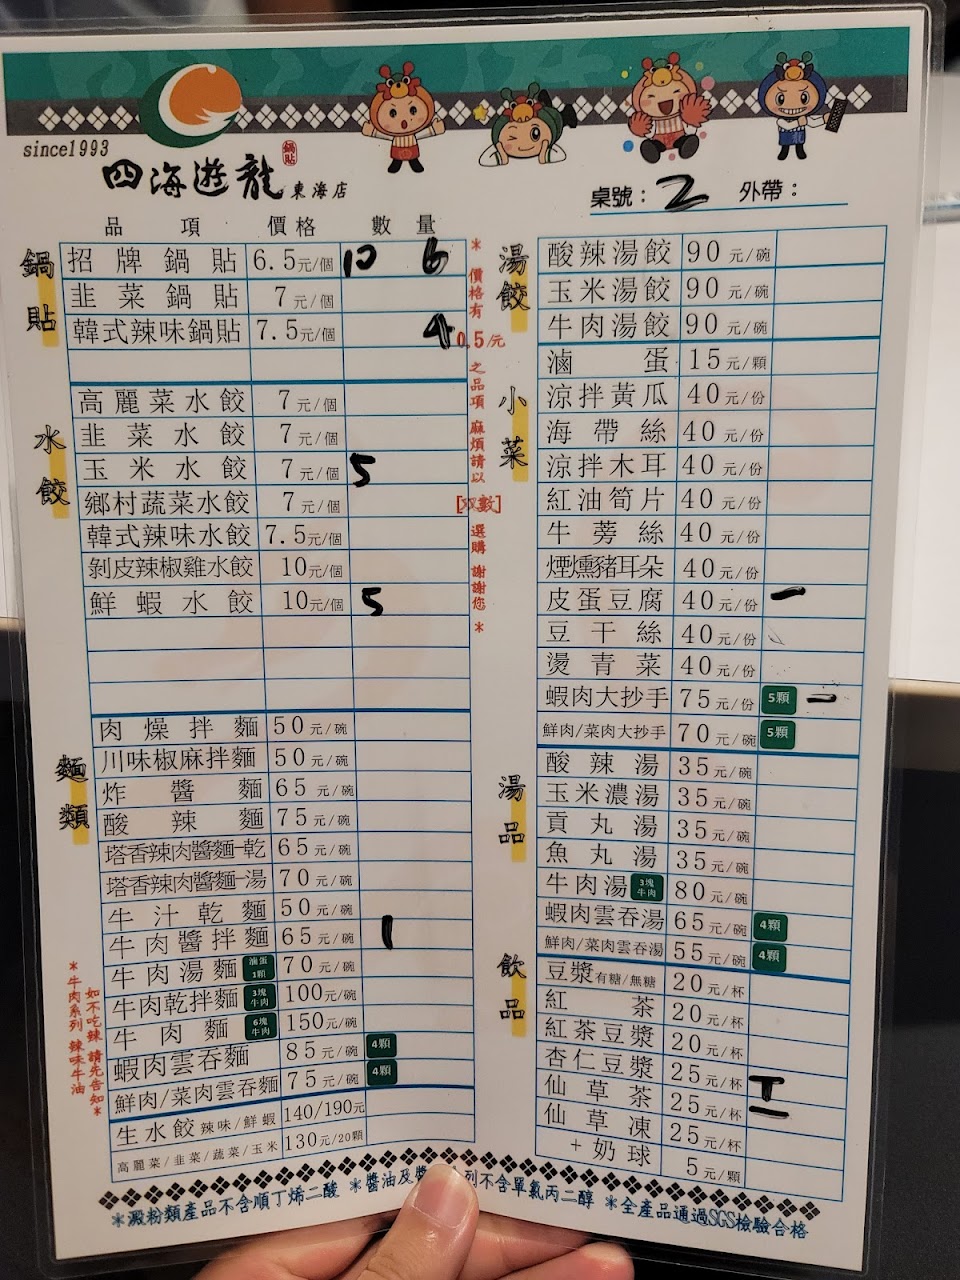 since1993
鍋貼
四海遊龍 東海店
桌號：2 外帶：
品項 價格 數量
鍋貼
招牌鍋貼 6.5元/個 10 6
韭菜鍋貼 7元/個
韓式辣味鍋貼 7.5元/個 4
水餃
高麗菜水餃 7元/個
韭菜水餃 7元/個
玉米水餃 7元/個 5
鄉村蔬菜水餃 7元/個
韓式辣味水餃 7.5元/個
剝皮辣椒雞水餃 10元/個
鮮蝦水餃 10元/個 5
麵類
肉燥拌麵 50元/碗
川味椒麻拌麵 50元/碗
炸醬麵 65元/碗
酸辣麵 75元/碗
塔香辣肉醬麵-乾 65元/碗
塔香辣肉醬麵-湯 70元/碗
牛汁乾麵 50元/碗
牛肉醬拌麵 65元/碗 1
牛肉湯麵 滷蛋1顆 70元/碗
牛肉乾拌麵 3塊牛肉 100元/碗
牛肉麵 6塊牛肉 150元/碗
蝦肉雲吞麵 85元/碗 4顆
鮮肉/菜肉雲吞麵 75元/碗 4顆
生水餃 辣味/鮮蝦 140/190元
高麗菜/韭菜/蔬菜/玉米 130元/20顆
*牛肉系列 辣味牛油
如不吃辣 請先告知*
*價格有0.5/元之品項 麻煩請以[双數]選購 謝謝您*
湯餃
酸辣湯餃 90元/碗
玉米湯餃 90元/碗
牛肉湯餃 90元/碗
小菜
滷蛋 15元/顆
涼拌黃瓜 40元/份
海帶絲 40元/份
涼拌木耳 40元/份
紅油筍片 40元/份
牛蒡絲 40元/份
煙燻豬耳朵 40元/份
皮蛋豆腐 40元/份 一
豆干絲 40元/份
燙青菜 40元/份
蝦肉大抄手 75元/份 5顆 一
鮮肉/菜肉大抄手 70元/碗 5顆
湯品
酸辣湯 35元/碗
玉米濃湯 35元/碗
貢丸湯 35元/碗
魚丸湯 35元/碗
牛肉湯 3塊牛肉 80元/碗
蝦肉雲吞湯 65元/碗 4顆
鮮肉/菜肉雲吞湯 55元/碗 4顆
飲品
豆漿 有糖/無糖 20元/杯
紅茶 20元/杯
紅茶豆漿 20元/杯
杏仁豆漿 25元/杯
仙草茶 25元/杯
仙草凍 25元/杯
+奶球 5元/顆
*澱粉類產品不含順丁烯二酸 *醬油及醬 列不含單氯丙二醇 *全產品通過SGS檢驗合格